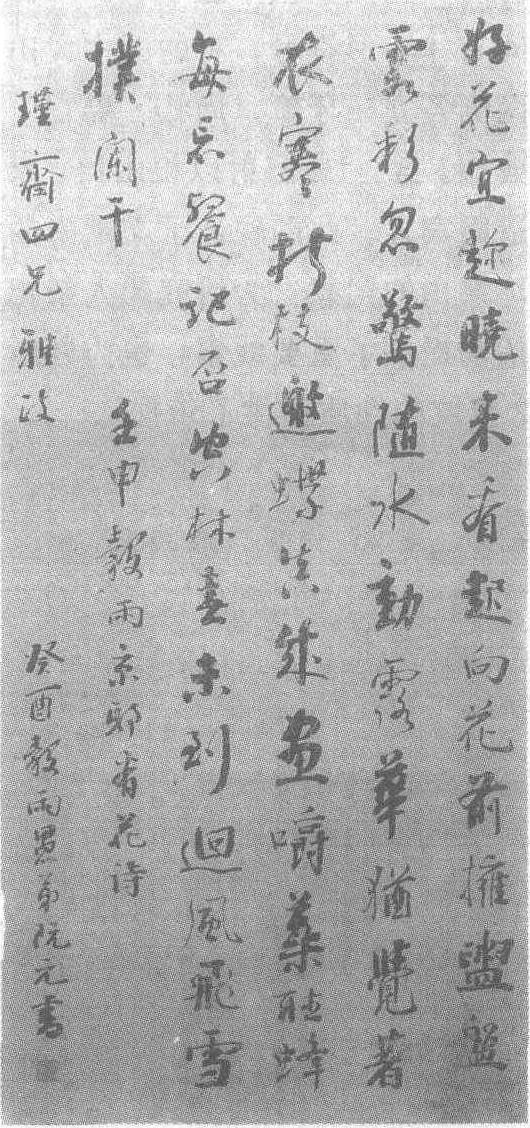 好花宜趁曉来看起向花前擁盥盤
雲影忽驚随水動露華猶覺著
衣寒折枝邀蝶真成畫嚼蘂聴蜂
每忘餐記否空林春未到迴風飛雪
撲闌干 壬申穀雨京邸看花詩
瑾齋四兄雅政 癸酉穀雨愚弟阮元書